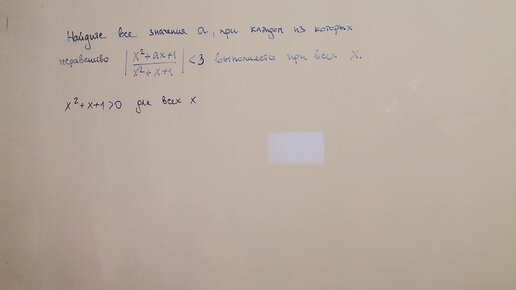 Найдите все значения a, при каждом из которых
неравенство |x²+ax+1 / x²+x+1| <3 выполняется при всех x.
x²+x+1>0 для всех x